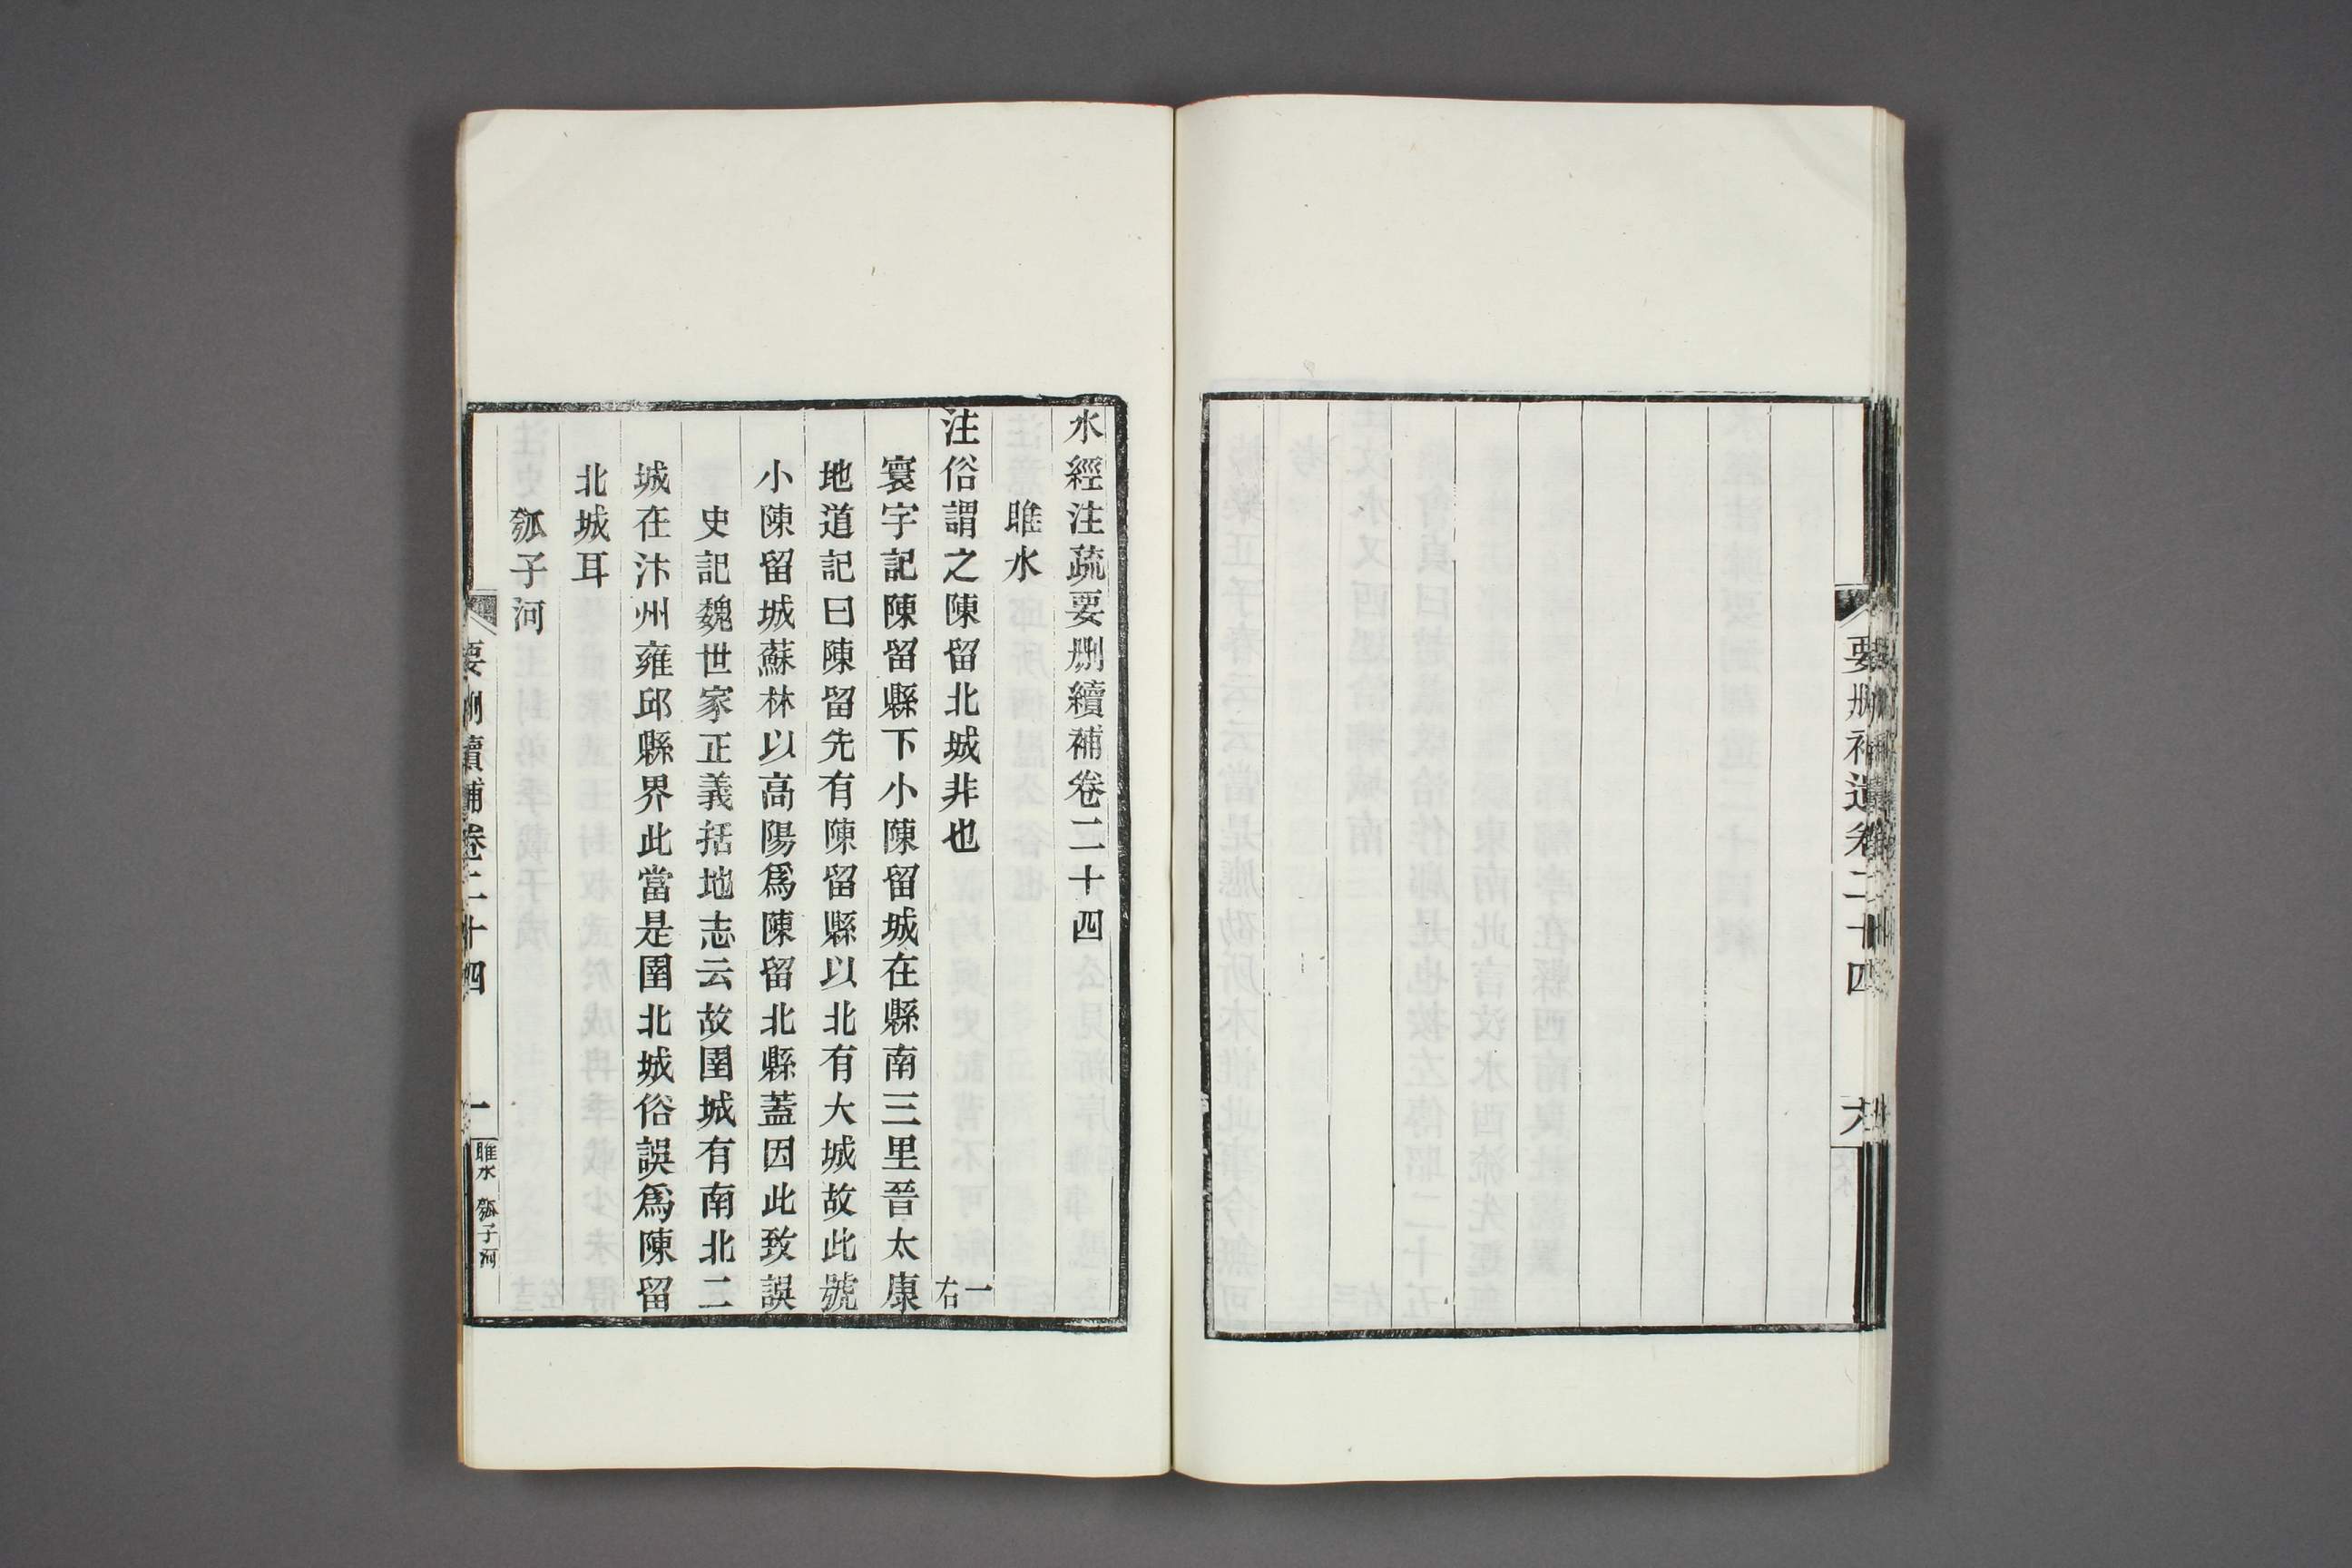 要删補遺卷二十四
六
水經注疏要删續補卷二十四
睢水
注俗謂之陳留北城非也 一右
寰宇記陳留縣下小陳留城在縣南三里晉太康
地道記曰陳留先有陳留縣以北有大城故此號
小陳留城蘇林以高陽爲陳留北縣蓋因此致誤
史記魏世家正義括地志云故圉城有南北二
城在汴州雍邱縣界此當是圉北城俗誤爲陳留
北城耳
瓠子河
要删續補卷二十四
一
睢水 瓠子河